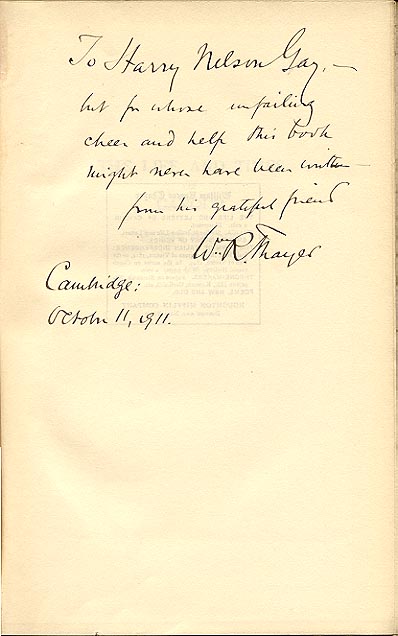 To Harry Nelson Gay, —
but for whose unfailing
cheer and help this book
might never have been written —
from his grateful friend
Wm. R. Thayer
Cambridge:
October 11, 1911.